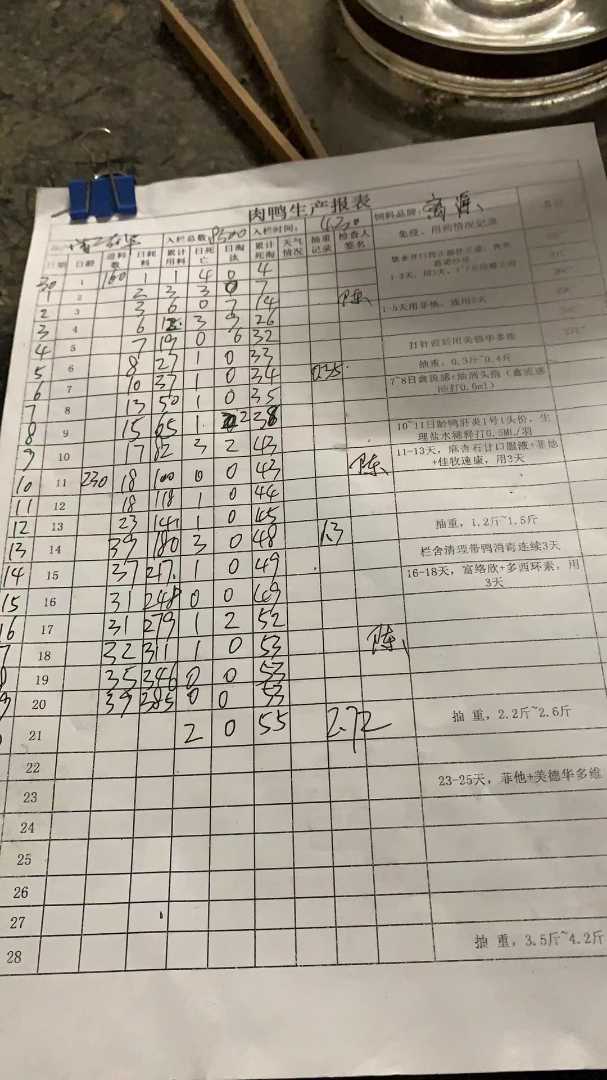 肉鸭生产报表
入栏总数 8500 入栏时间: 4.30 饲料品牌:
日期 日龄 进料数 日耗料 累计用料 日死亡 日淘汰 累计死淘 天气情况 抽重记录 检查人签名 免疫、用药情况记录 备注
30 1 160 4 0 4
1 2 2 3 3 0 7
2 3 3 6 0 7 14 陈 1-5天用菲他,连用5天
3 4 6 12 3 9 26
4 5 7 19 0 6 32 打针前后用美德华多维
5 6 8 27 1 0 33 抽重,0.3斤~0.4斤
6 7 10 37 1 0 34 0.35
7 8 13 50 1 0 35
8 9 15 65 1 2 38 10~11日龄鸭肝炎1号1头份,生理盐水稀释打0.5ML/羽
9 10 17 82 3 2 43 11-13天,麻杏石甘口服液+菲他+佳牧速康,用3天
10 11 230 18 100 0 0 43 陈
11 12 18 118 1 0 44
12 13 23 141 1 0 45 抽重,1.2斤~1.5斤
13 14 39 180 3 0 48 1.3 栏舍清理带鸭消毒连续3天
14 15 37 217 1 0 49 16-18天,富络欣+多西环素,用3天
15 16 31 248 0 0 49
16 17 31 279 1 2 52
7 18 32 311 1 0 53 陈
19 35 346 0 0 53
9 20 39 385 0 0 53
21 2 0 55 2.72 抽重,2.2斤~2.6斤
22
23 23-25天,菲他+美德华多维
24
25
26
27
28 抽重,3.5斤~4.2斤